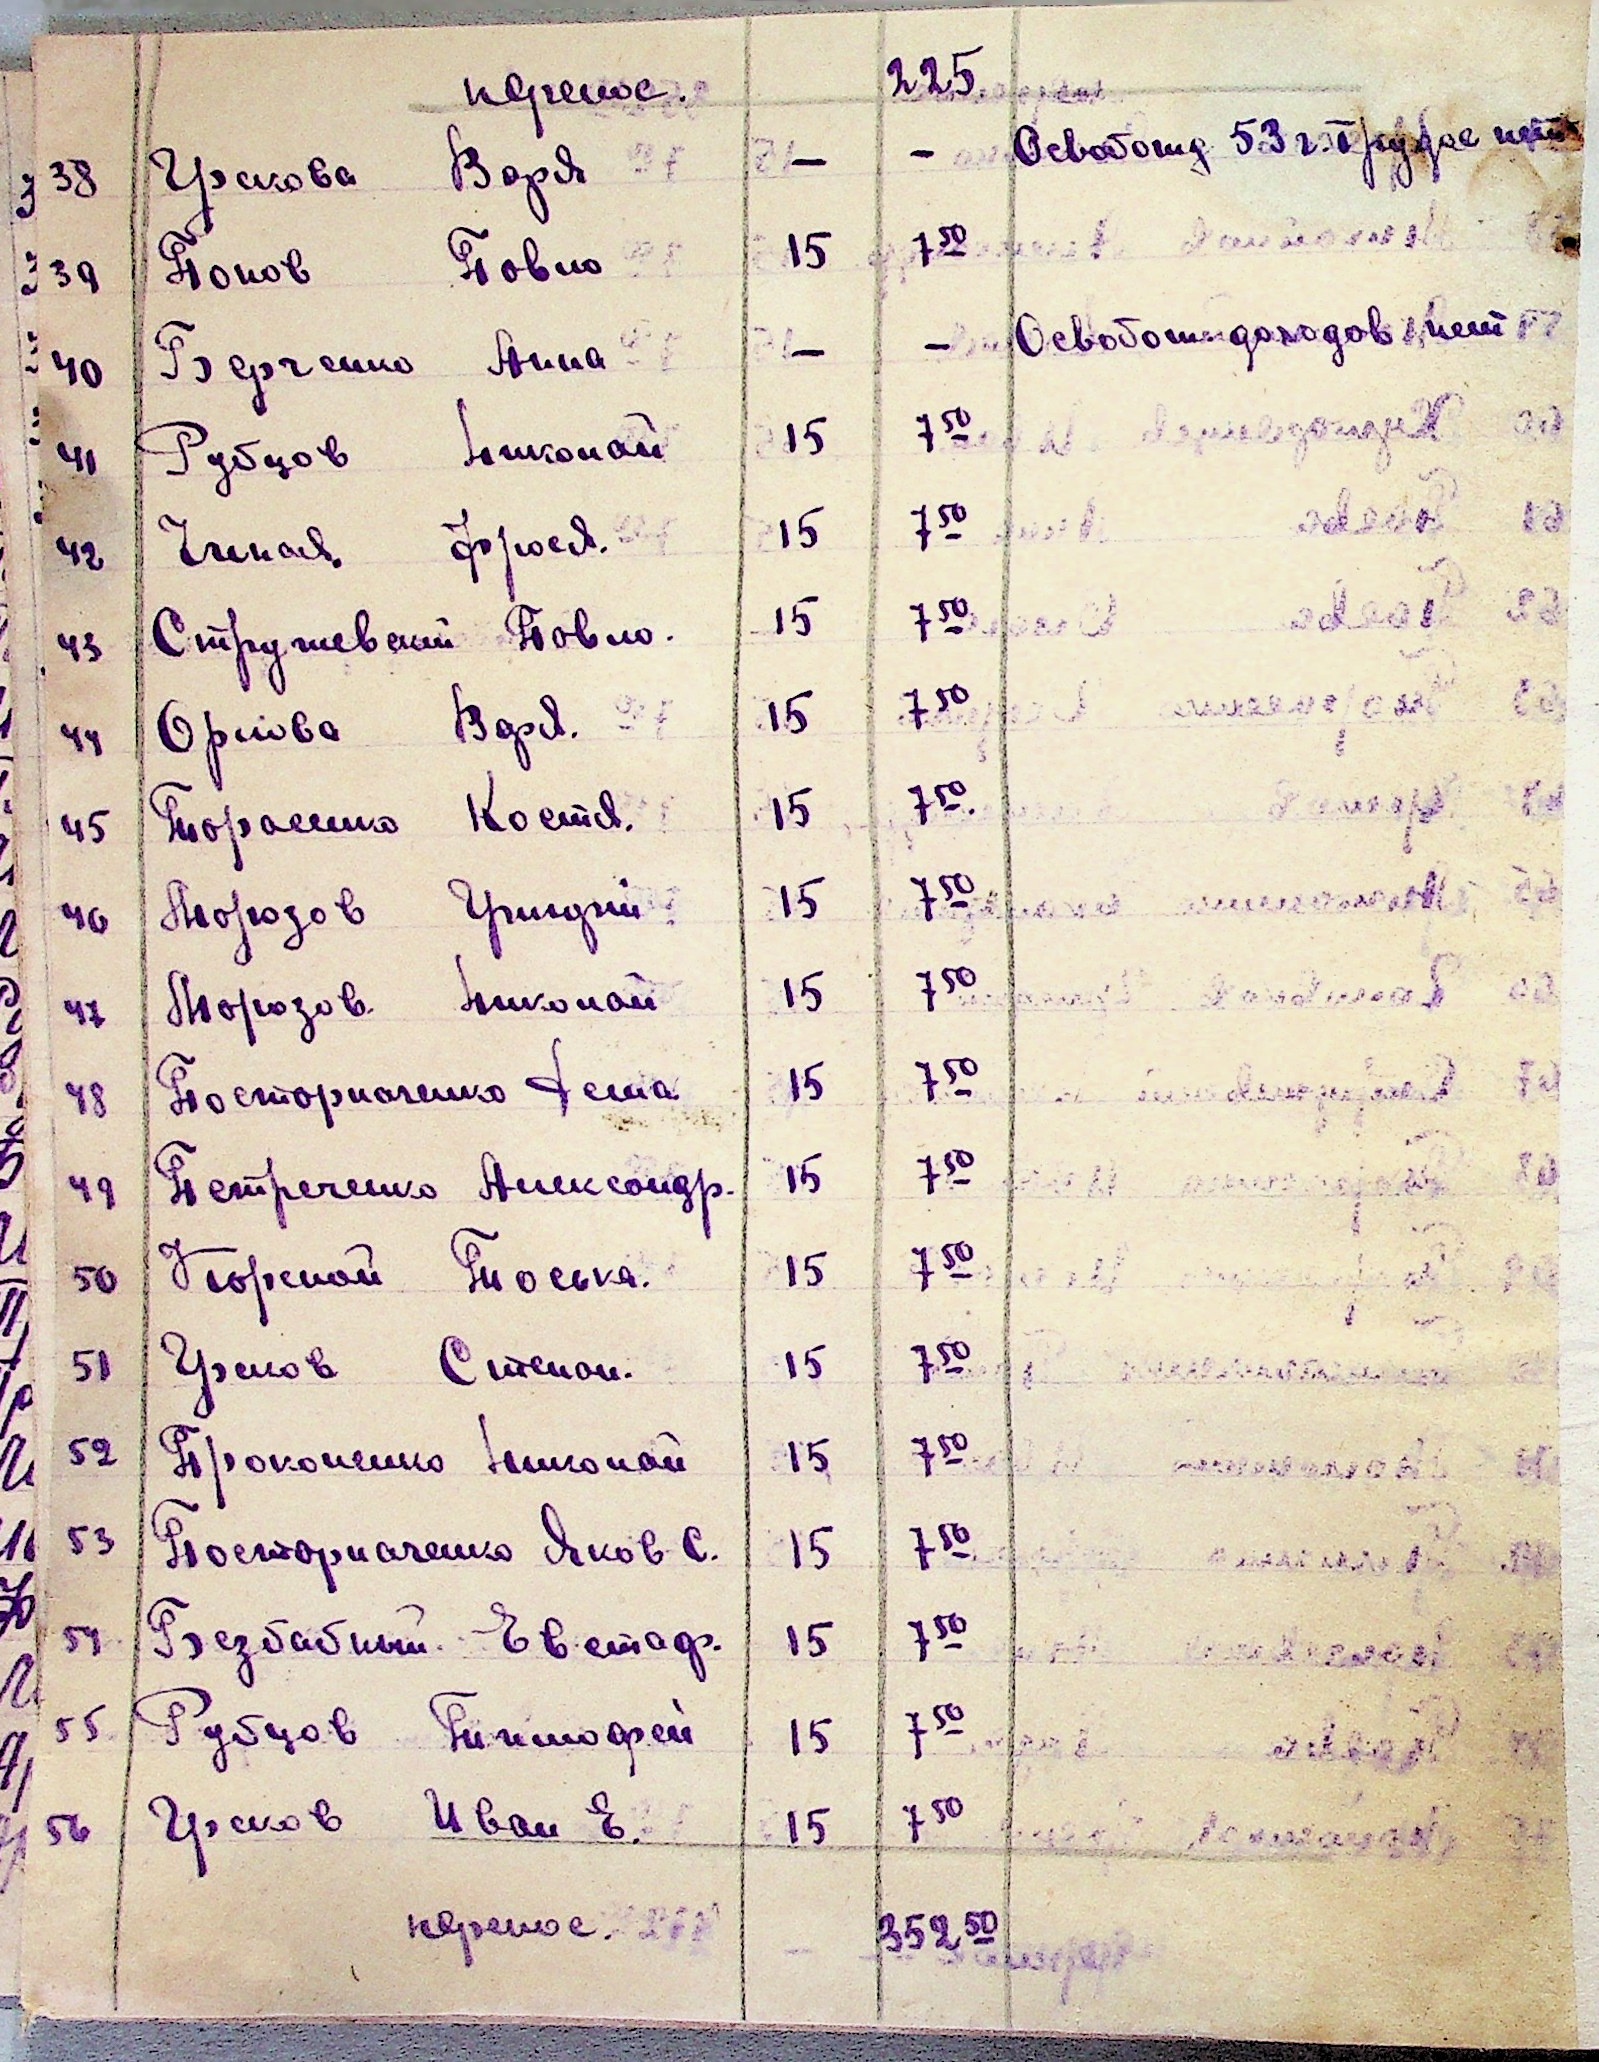 перенос. 225
38 Ускова Варя — — Освобожд 53 г. нет
39 Попов Повло 15 7 50
40 Берченко Анна — — Освобожд доходов нет
41 Рубцов Николай 15 7 50
42 Фрося. 15 7 50
43 Стружевский Повло. 15 7 50
44 Орлова Варя. 15 7 50
45 Торасенко Костя. 15 7 50.
46 Морозов Григорий 15 7 50
47 Морозов Николай 15 7 50
48 Посторначенко 15 7 50
49 Петреченко Александр. 15 7 50
50 Тоська. 15 7 50
51 Усков Степан. 15 7 50
52 Прокопенко Николай 15 7 50
53 Посторначенко Яков С. 15 7 50
54 Безбабный Евстаф. 15 7 50
55 Рубцов Тимофей 15 7 50
56 Усков Иван Е. 15 7 50
перенос. 352 50